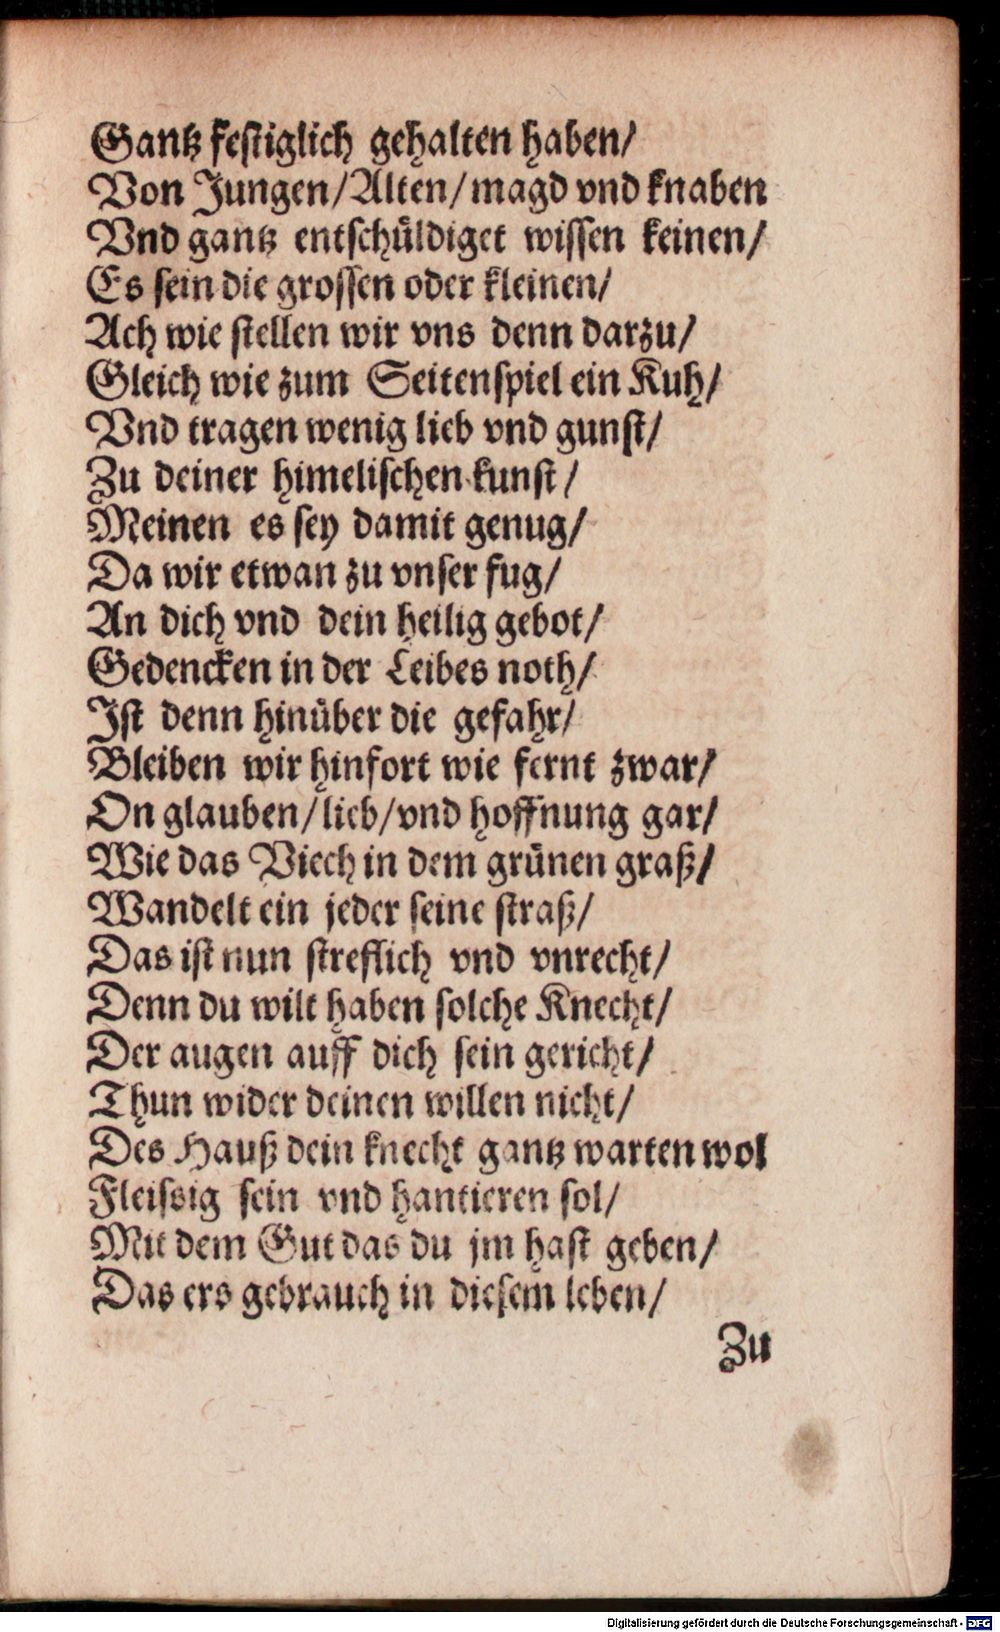 Gantz festiglich gehalten haben/
Von Jungen/Alten/magd vnd knaben
Vnd gantz entschüldiget wissen keinen/
Es sein die grossen oder kleinen/
Ach wie stellen wir vns denn darzu/
Gleich wie zum Seitenspiel ein Kuh/
Vnd tragen wenig lieb vnd gunst/
Zu deiner himelischen kunst/
Meinen es sey damit genug/
Da wir etwan zu vnser fug/
An dich vnd dein heilig gebot/
Gedencken in der Leibes noth/
Ist denn hinüber die gefahr/
Bleiben wir hinfort wie fernt zwar/
On glauben/lieb/vnd hoffnung gar/
Wie das Viech in dem grünen graß/
Wandelt ein jeder seine straß/
Das ist nun streflich vnd vnrecht/
Denn du wilt haben solche Knecht/
Der augen auff dich sein gericht/
Thun wider deinen willen nicht/
Des Hauß dein knecht gantz warten wol
Fleissig sein vnd hantieren sol/
Mit dem Gut das du jm hast geben/
Das ers gebrauch in diesem leben/
Zu
Digitalisierung gefördert durch die Deutsche Forschungsgemeinschaft - DFG